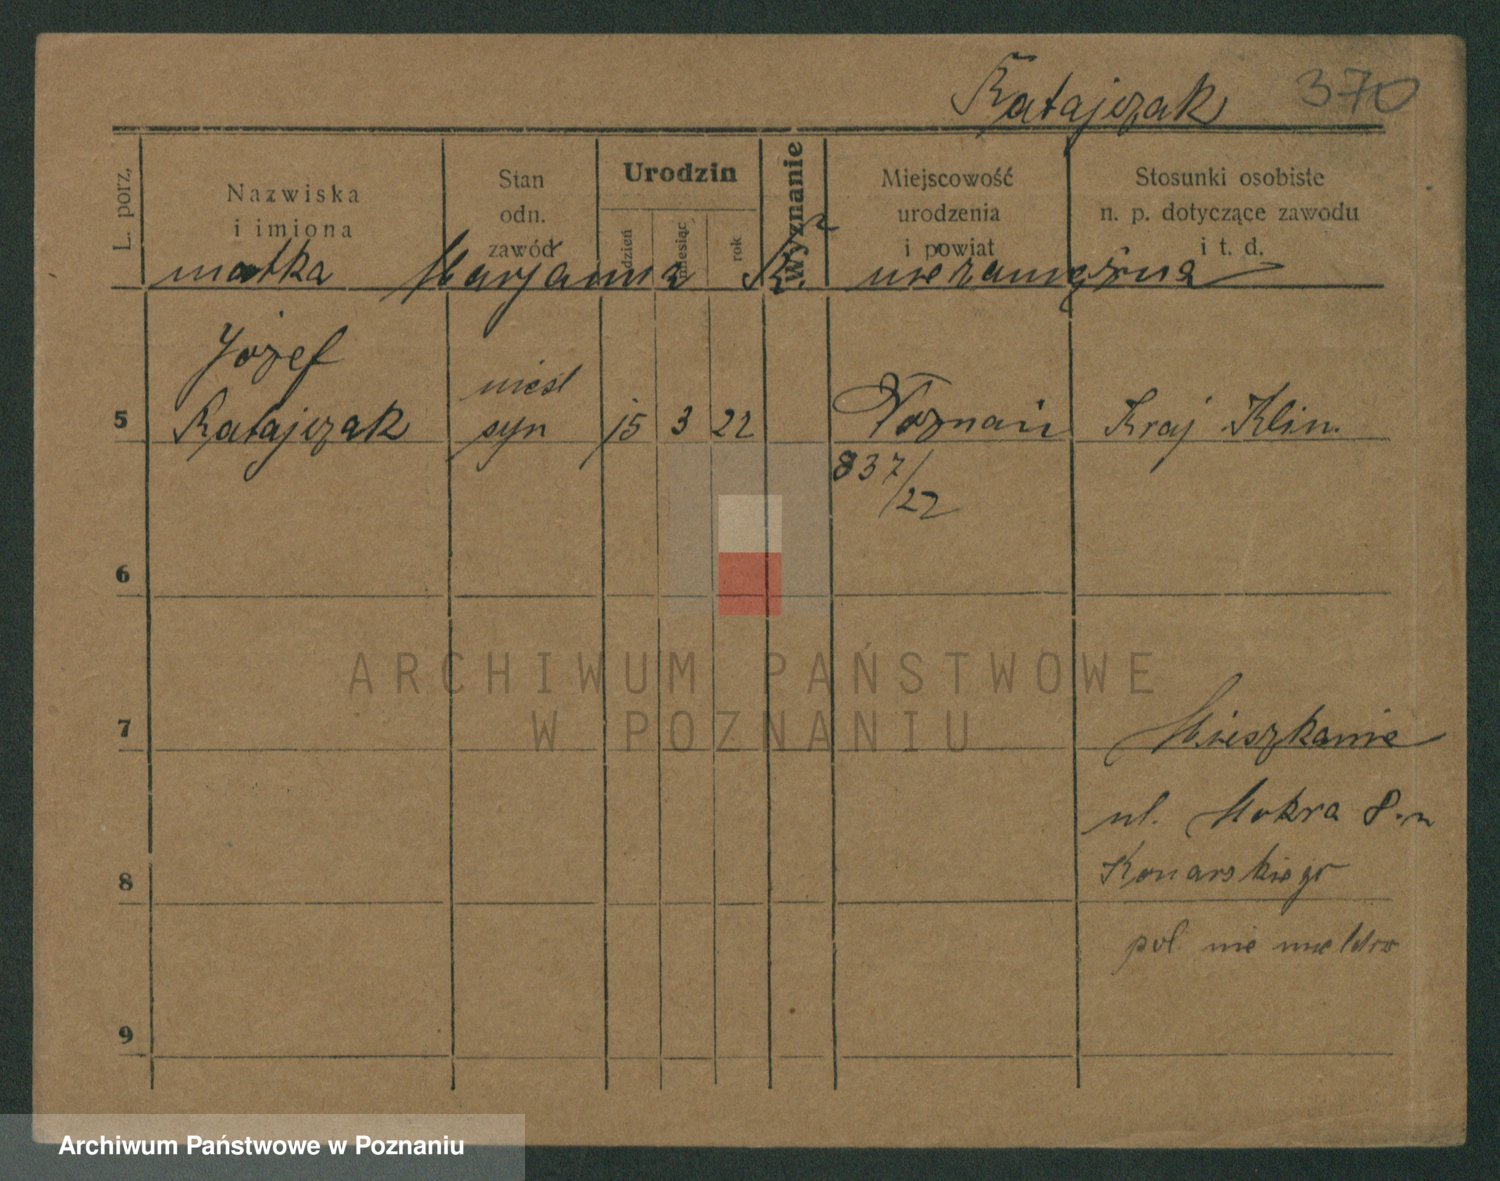 Ratajczak 370
L. porz.
Nazwiska
i imiona
Stan
odn.
zawód
Urodzin
dzień
miesiąc
rok
Wyznanie
Miejscowość
urodzenia
i powiat
Stosunki osobiste
n. p. dotyczące zawodu
i t. d.
matka Marjanna R. niezamężna
Józef
5 Ratajczak
nieśl
syn
15 3 22
Poznań
837/22
Kraj. Klin.
6
7
Mieszkanie
ul. Mokra 8.
8
Konarskiego
pol nie
9
ARCHIWUM PAŃSTWOWE
W POZNANIU
Archiwum Państwowe w Poznaniu